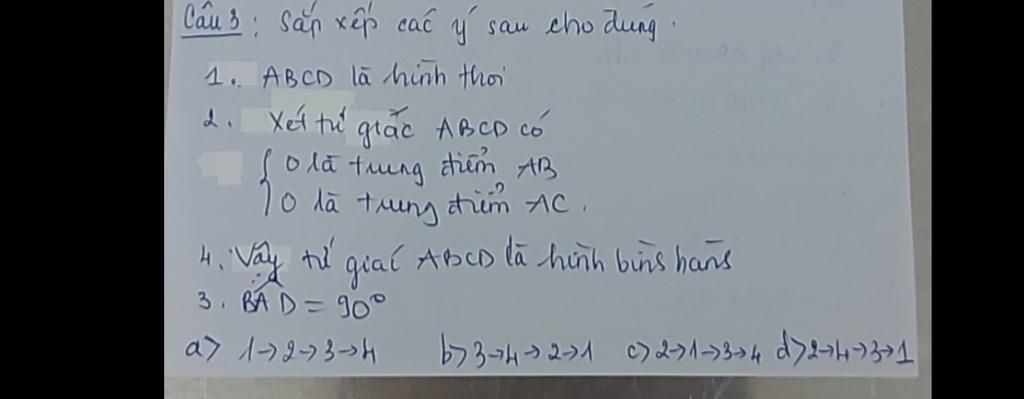 Câu 3: Sắp xếp các ý sau cho đúng.
1. ABCD là hình thoi
2. Xét tứ giác ABCD có
{ O là trung điểm AB
O là trung điểm AC.
4. Vậy tứ giác ABCD là hình bình hành
3. BAD = 90°
a> 1→2→3→4 b> 3→4→2→1 c> 2→1→3→4 d> 2→4→3→1